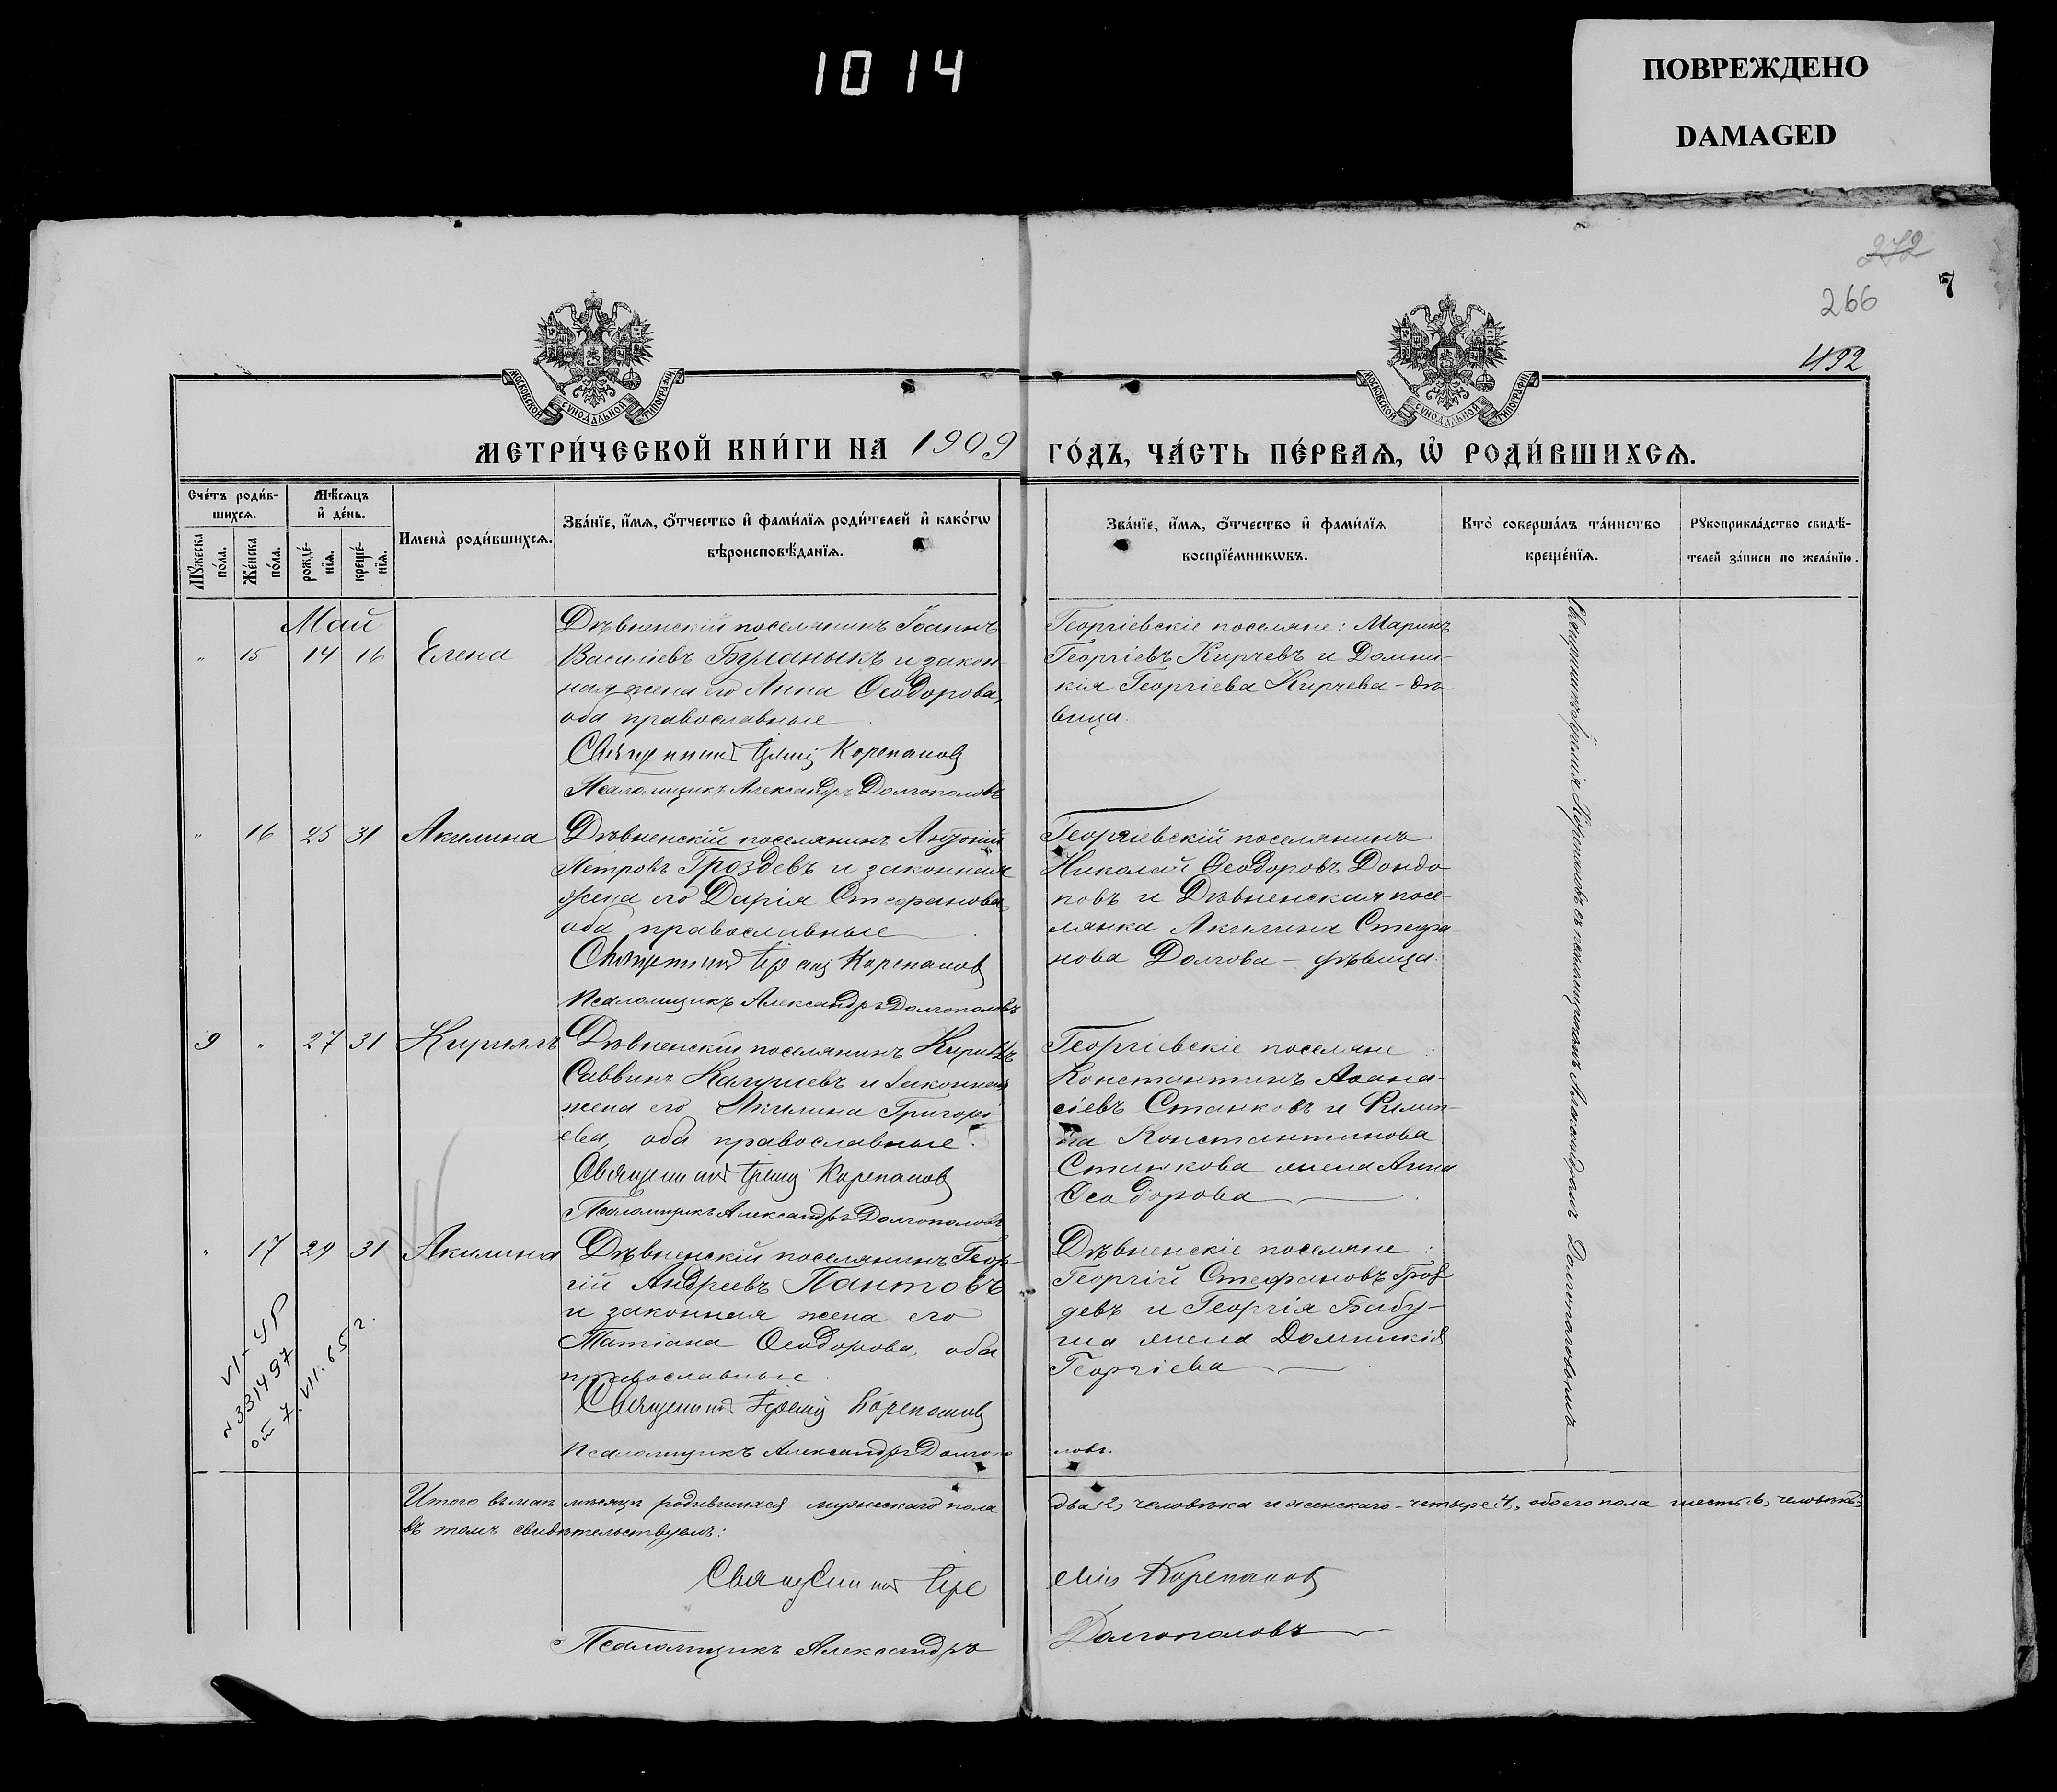 1014
ПОВРЕЖДЕНО
DAMAGED
272
7
266
492
МОСКОВСКОЙ СУНОДАЛЬНОЙ ТИПОГРАФІИ
МОСКОВСКОЙ СУНОДАЛЬНОЙ ТИПОГРАФІИ
МЕТРИ́ЧЕСКОЙ КНИ́ГИ НА 1909 ГО́ДЪ, ЧА́СТЬ ПЕ́РВАѦ, Ѽ РОДИ́ВШИХСѦ.
Сче́тъ роди́в-
шихсѧ.
Мѣ́сѧцъ
и҆ де́нь.
Мꙋ́жеска
по́ла.
Же́нска
по́ла.
рожде́-
нїѧ.
креще́-
нїѧ.
Имена̀ роди́вшихсѧ.
Зва́нїе, и҆́мѧ, ѻ҆́тчество и҆ фами́лїѧ роди́телей и҆ како́гѡ
вѣроисповѣ́данїѧ.
Зва́нїе, и҆́мѧ, ѻ҆́тчество и҆ фами́лїѧ
воспрїе́мникѡвъ.
Кто̀ соверша́лъ та́инство
креще́нїѧ.
Рꙋкоприкла́дство свидѣ́-
телей за́писи по жела́нїю.
Май
" 15 14 16 Елена
Дѣвненскій поселянинъ Іоаннъ
Василіевъ Буланыкъ и закон-
ная жена его Анна Ѳеодорова,
оба православные
Священникъ Іеремій Корепановъ
Псаломщикъ Александръ Долгополовъ
Георгіевскіе поселяне: Маринъ
Георгіевъ Кирчевъ и Домни-
кія Георгіева Кирчева - дѣ-
вица.
" 16 25 31 Акилина
Дѣвненскій поселянинъ Антоній
Петровъ Гроздевъ и законная
жена его Дарія Стефанова,
оба православные
Священникъ Іеремій Корепановъ
Псаломщикъ Александръ Долгополовъ
Георгіевскій поселянинъ
Николай Ѳеодоровъ Дондо
новъ и Дѣвненская посе-
лянка Акилина Стефа-
нова Долгова - дѣвица.
9 " 27 31 Кириллъ
Дѣвненскій поселянинъ Кириллъ
Саввинъ Калчиевъ и законная
жена его Акилина Григорі
ева, оба православные.
Священникъ Іеремій Корепановъ
Псаломщикъ Александръ Долгополовъ
Георгіевскіе поселяне:
Константинъ Аѳана-
сіевъ Станковъ и Филип-
па Константинова
Станкова жена Анна
Ѳеодорова
" 17 29 31 Акилина
Дѣвненскій поселянинъ Геор-
гій Андреевъ Пантовъ
и законная жена его
Татіана Ѳеодорова, оба
православные.
Священникъ Іеремій Корепановъ
Псаломщикъ Александръ Долгополовъ.
Дѣвненскіе поселяне:
Георгій Стефановъ Гроз
девъ и Георгія Бабу-
ша жена Домникія
Георгіева
VI-УР
№ 331497
от 7.VII.65 г.
Священникъ Іеремія Корепановъ съ псаломщикомъ Александромъ Долгополовымъ
Итого въ маѣ мѣсяцѣ родившихся мужескаго пола два 2, человѣка и женскаго - четыре 4, обоего пола шесть 6, человѣкъ,
въ томъ свидѣтельствуемъ:
Священникъ Іеремій Корепановъ
Псаломщикъ Александръ Долгополовъ